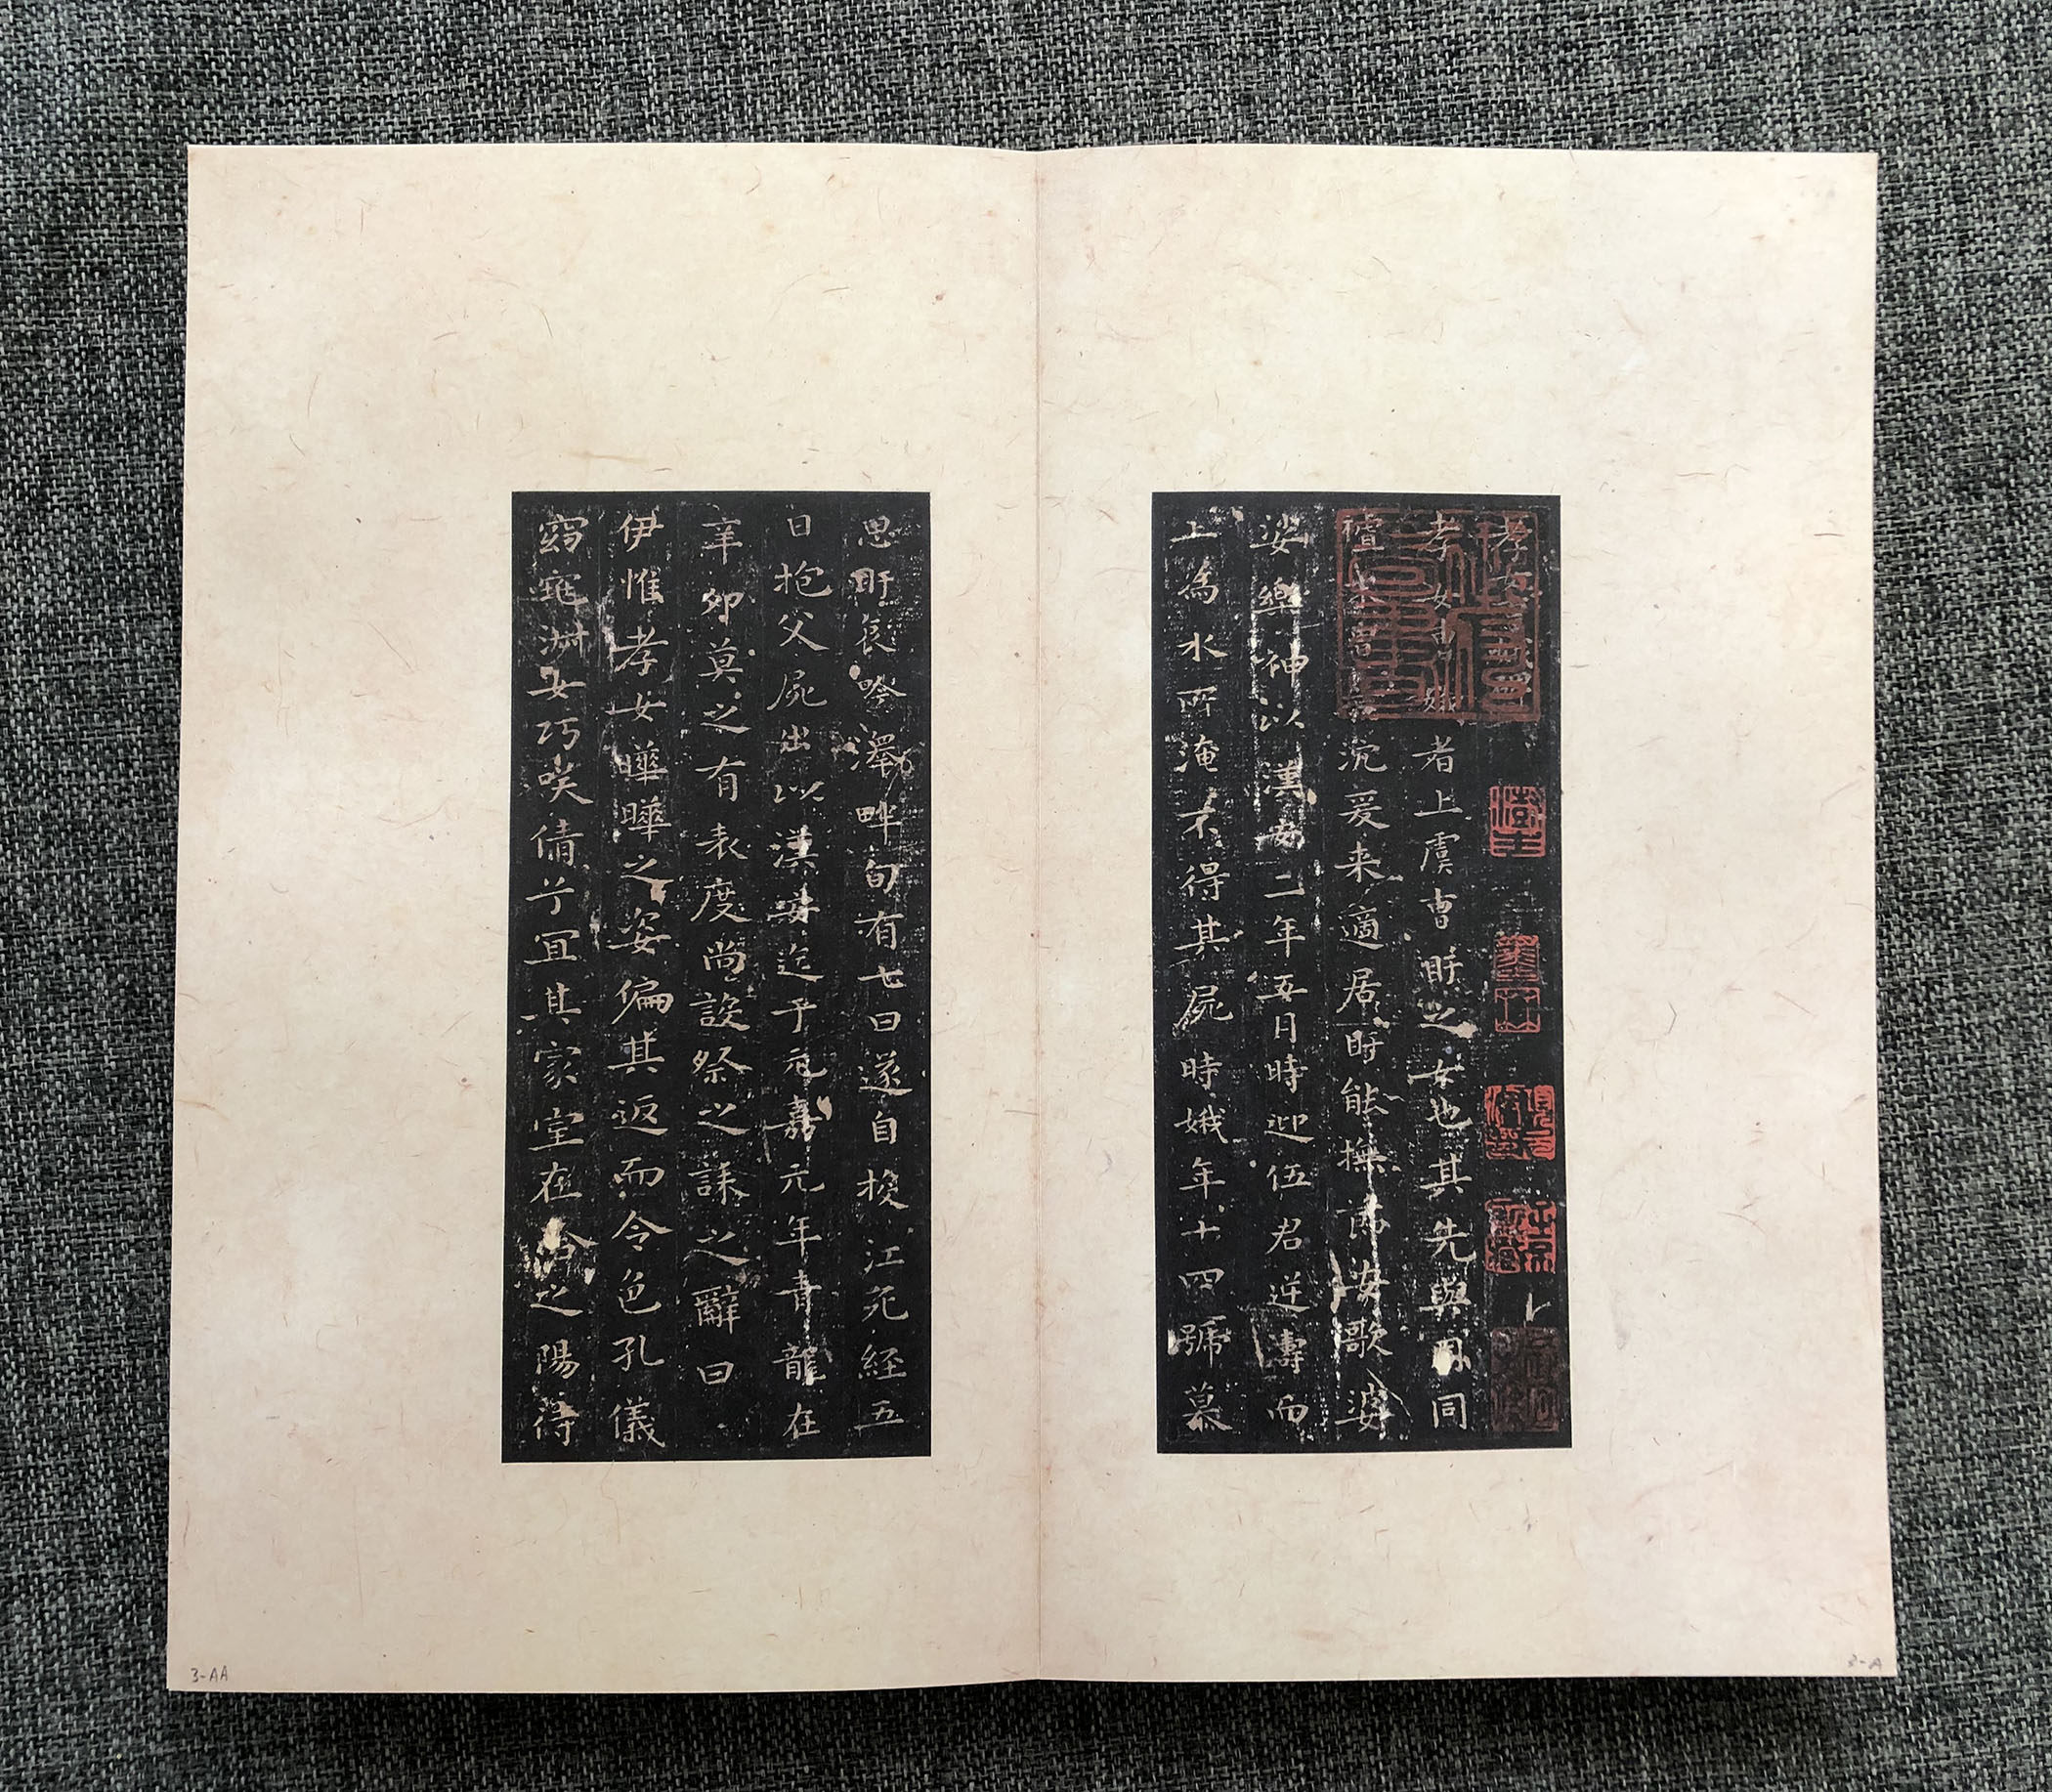 孝女曹娥碑
孝女曹娥者上虞曹盱之女也其先與周同
祖末冑荒沉爰来適居盱能撫節安歌婆
娑樂神以漢安二年五月時迎伍君逆濤而
上為水所淹不得其屍時娥年十四號慕
思盱哀吟澤畔旬有七日遂自投江死經五
日抱父屍出以漢安迄于元嘉元年青龍在
辛卯莫之有表度尚設祭之誄之辭曰
伊惟孝女曄曄之姿偏其返而令色孔儀
窈窕淑女巧咲倩兮宜其家室在洽之陽待
3-AA
3-A